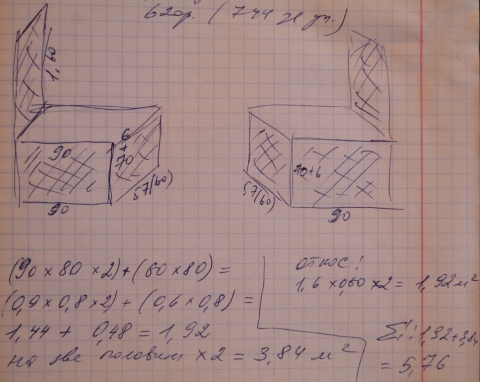 62гр. (744
1,60
90
6
+
70
57(60)
90
70+6
57(60)
90
(90 x 80 x 2) + (60 x 80) =
(0,9 x 0,8 x 2) + (0,6 x 0,8) =
1,44 + 0,48 = 1,92
на две половин x 2 = 3,84 м²
откос!
1,6 x 0,60 x 2 = 1,92 м²
Σ: 1,92 + 3,84
= 5,76